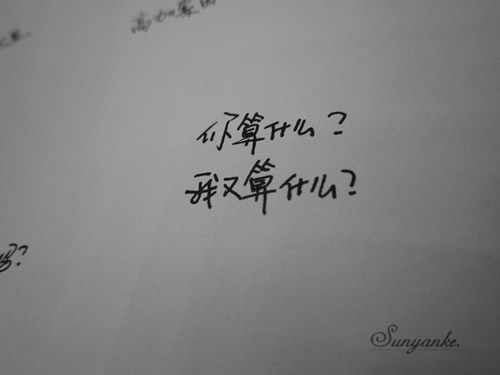 你算什么?
我又算什么?
Sunyanke.